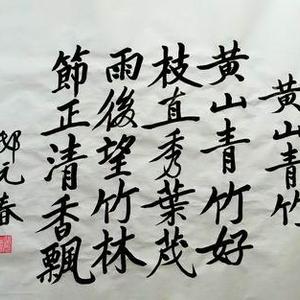 黄山青竹
黄山青竹好
枝直秀葉茂
雨後望竹林
節正清香飄
邬元春